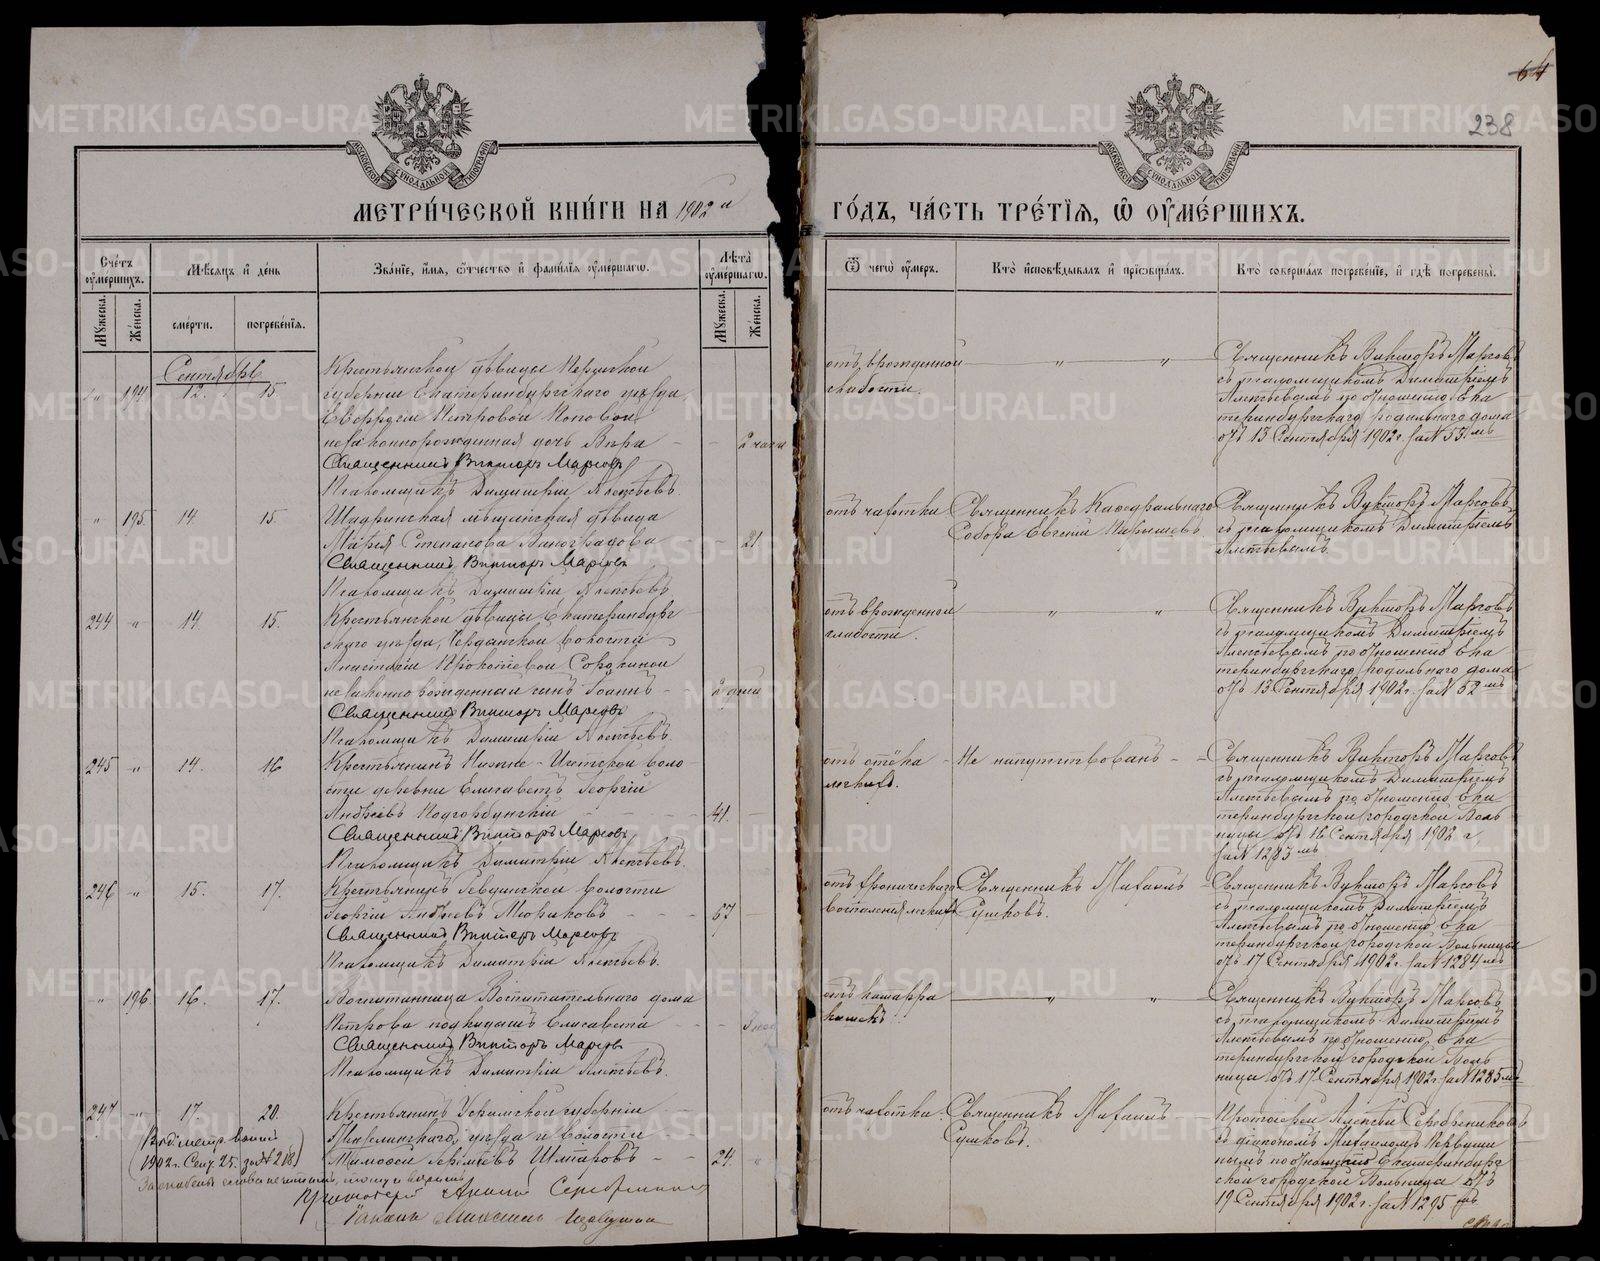 64
238
МЕТРИЧЕСКОЙ КНИГИ НА 1902 й ГОДЪ, ЧАСТЬ ТРЕТІЯ, Ѿ ОУМЕРШИХЪ.
Счетъ оумершихъ.
Мѣсяцъ и день
Званіе, имя, отчество и фамилія оумершаго.
Лѣта оумершаго.
Ѿ чего оумеръ.
Кто исповѣдывалъ и пріобщалъ.
Кто совершалъ погребеніе, и гдѣ погребены.
Мужеска.
Женска.
смерти.
погребенія.
Мужеска.
Женска.
Сентябрь
" 194 12. 15.
Крестьянской дѣвицы Пермской
губерніи Екатеринбургскаго уѣзда,
Евфросіи Петровой Поповой
незаконнорожденная дочь Вѣра - - 2 часа
Священникъ Викторъ Марсовъ
Псаломщикъ Димитрій Алетѣевъ.
отъ врожденной
слабости.
" "
Священникъ Викторъ Марсовъ
съ псаломщикомъ Димитріемъ
Алетѣевымъ по отношенію Ека
теринбургскаго родильнаго дома
отъ 13 Сентября 1902 г. за № 53 мъ
" 195. 14. 15.
Шадринская мѣщанская дѣвица
Марія Степанова Виноградова - - 21
Священникъ Викторъ Марсовъ
Псаломщикъ Димитрій Алетѣевъ
отъ чахотки
Священникъ Кафедральнаго
Собора Евгеній
Священникъ Викторъ Марсовъ
съ псаломщикомъ Димитріемъ
Алетѣевымъ
244 " 14. 15.
Крестьянской дѣвицы Екатеринбург
скаго уѣзда, волости
Анастасіи Прокопіевой Сорокиной
незаконно рожденный сынъ Іоаннъ - 2 дня
Священникъ Викторъ Марсовъ
Псаломщикъ Димитрій Алетѣевъ.
отъ врожденной
слабости.
" "
Священникъ Викторъ Марсовъ
съ псаломщикомъ Димитріемъ
Алетѣевымъ по отношенію Ека
теринбургскаго родильнаго дома
отъ 13 Сентября 1902 г. за № 52 мъ
245 " 14. 16
Крестьянинъ Нижне-Исетской воло
сти деревни Елисаветъ Георгій
Андреевъ Подгорбунскій - - - 41. -
Священникъ Викторъ Марсовъ
Псаломщикъ Димитрій Алетѣевъ.
отъ отёка
легкихъ.
- Не напутствованъ -
Священникъ Викторъ Марсовъ
съ псаломщикомъ Димитріемъ
Алетѣевымъ по отношенію Ека
теринбургской городской Боль
ницы отъ 16 Сентября 1902 г
за № 1283 мъ
246 " 15. 17.
Крестьянинъ Ревдинской волости
Георгій Андреевъ Мюриковъ - - - 67
Священникъ Викторъ Марсовъ
Псаломщикъ Димитрій Алетѣевъ.
отъ хроническаго
воспаленія легкихъ
Священникъ Михаилъ
Сушковъ.
Священникъ Викторъ Марсовъ
съ псаломщикомъ Димитріемъ
Алетѣевымъ по отношенію Ека
теринбургской городской Больницы
отъ 17 Сентября 1902 г. за № 1284 мъ
" 196. 16. 17.
Воспитанница Воспитательнаго дома
Петрова подкидышъ Елисавета - - -
Священникъ Викторъ Марсовъ
Псаломщикъ Димитрій Алетѣевъ.
отъ катарра
кишекъ
" "
Священникъ Викторъ Марсовъ
съ псаломщикомъ Димитріемъ
Алетѣевымъ по отношенію Ека
теринбургской городской Боль
ницы отъ 17 Сентября 1902 г. за № 1285 мъ
247 " 17. 20.
Крестьянинъ Уфимской губерніи
уѣзда и волости
Тимофей Шмаровъ - - 24. "
1902 г. Сент. 25. за № 218)
Протоіерей Алексій Серебрениковъ
Діаконъ Михаилъ Первушинъ
отъ чахотки.
Священникъ Михаилъ
Сушковъ.
Протоіерей Алексѣй Серебрениковъ
съ діакономъ Михаиломъ Первуши
нымъ по отношенію Екатеринбург
ской городской Больницы отъ
19 Сентября 1902 г. за № 1295 мъ